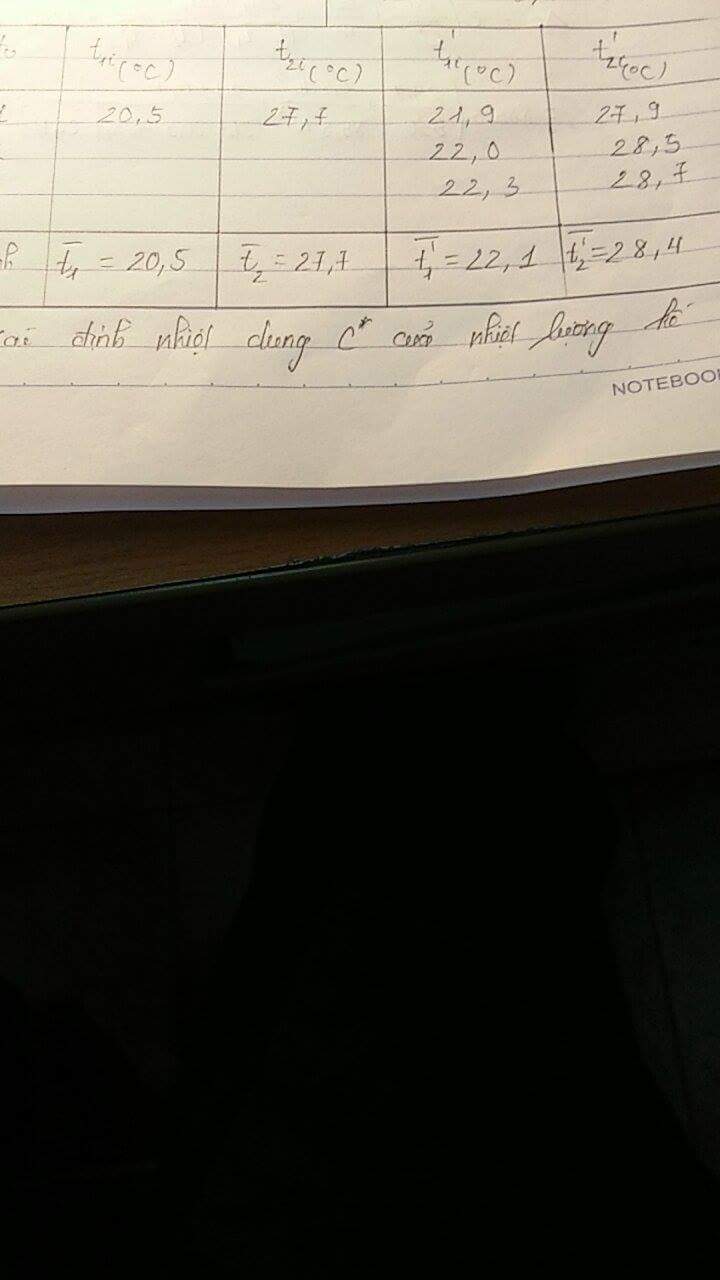 t1i (°C) t2i (°C) t'1i (°C) t'2i (°C)
20,5 27,7 21,9 27,9
22,0 28,5
22,3 28,7
t̄1 = 20,5 t̄2 = 27,7 t̄'1 = 22,1 t̄'2 = 28,4
định nhiệt dung C* của nhiệt lượng kế
NOTEBOO